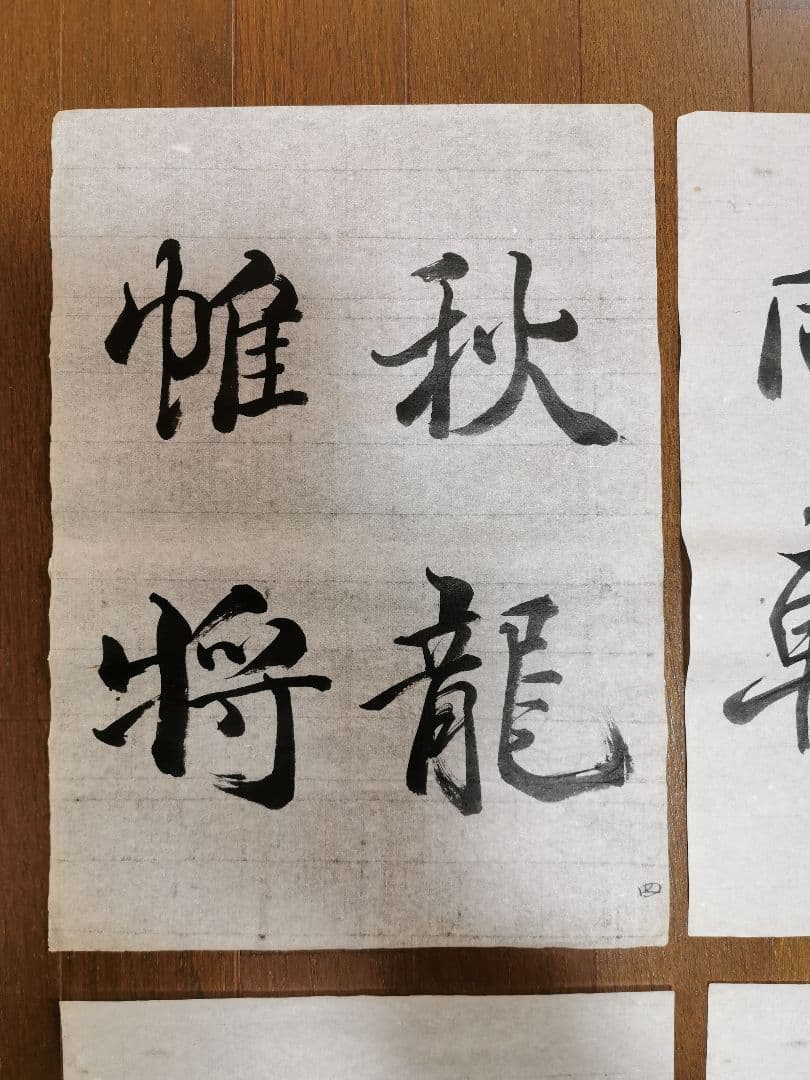 秋龍
帷將